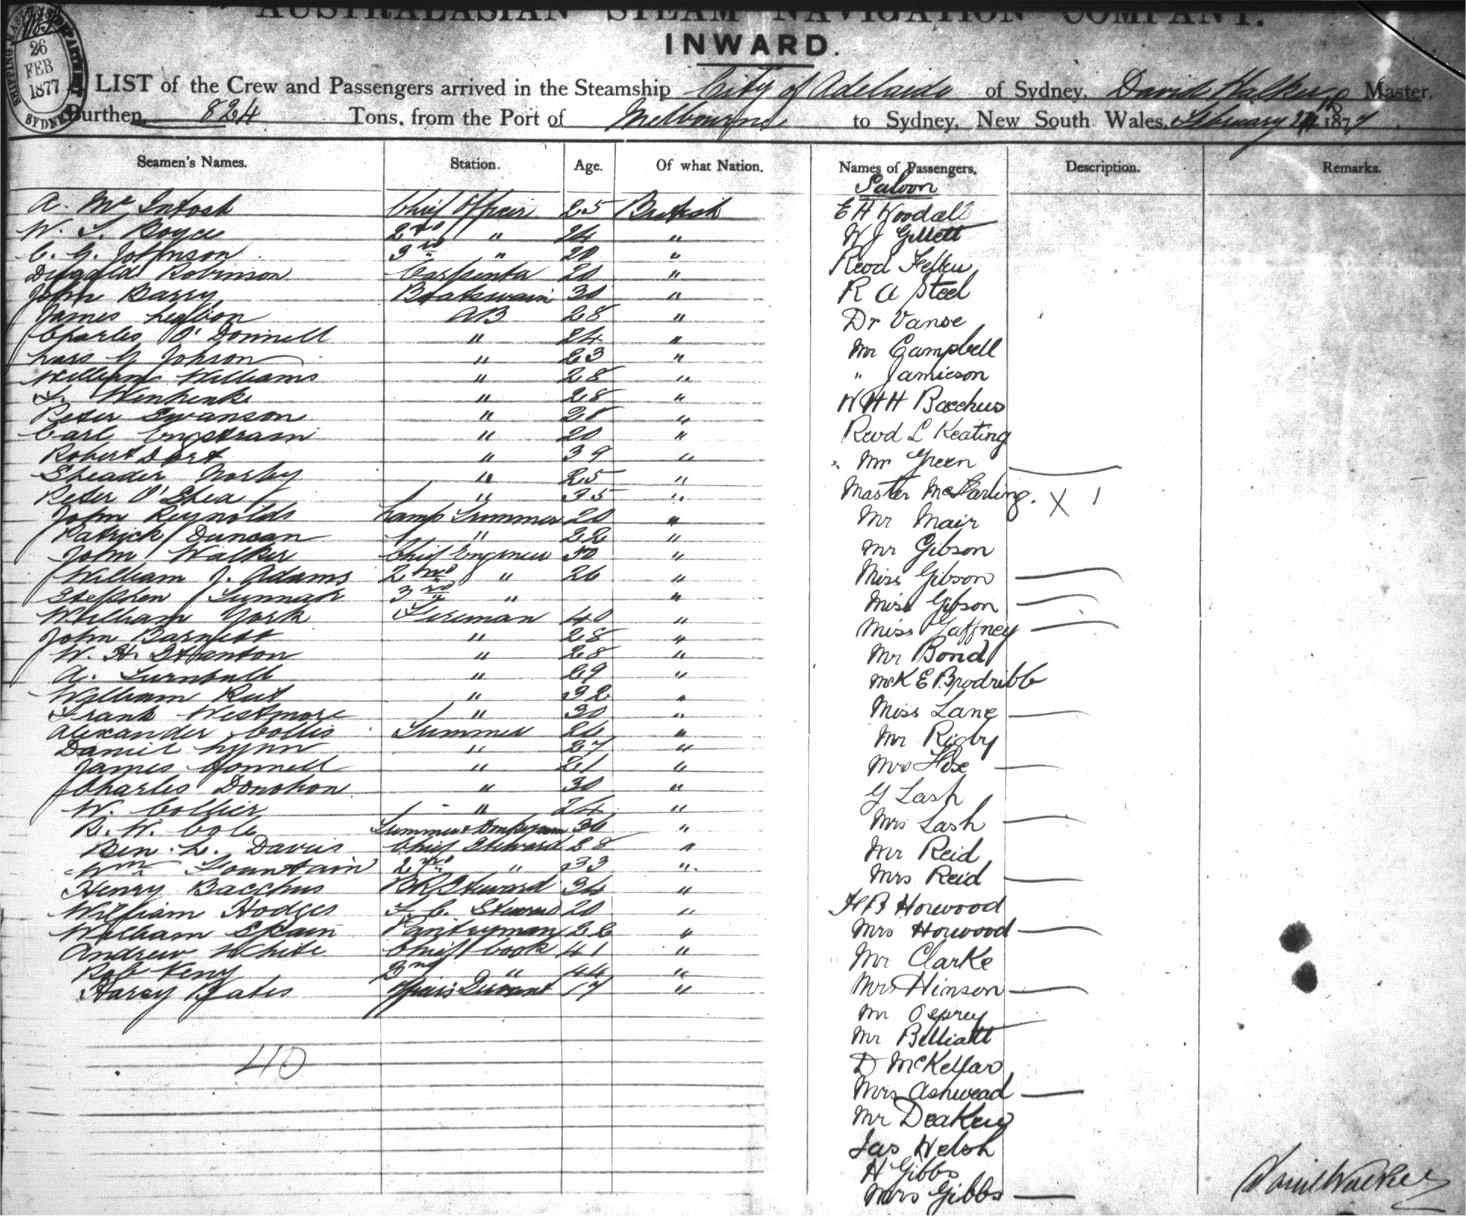 AUSTRALASIAN STEAM NAVIGATION COMPANY.
INWARD.
26
FEB
1877
SYDNEY
LIST of the Crew and Passengers arrived in the Steamship City of Adelaide of Sydney, David Walker Master,
Burthen, 824 Tons, from the Port of Melbourne to Sydney, New South Wales, February 1877
Seamen's Names. Station. Age. Of what Nation. Names of Passengers, Description. Remarks.
Saloon
A. McIntosh Chief Officer 25 British
W. Boyce 2nd " 24 "
C. G. Johnson 3rd " 20 "
Dugald Robinson Carpenter 20 "
John Barry Boatswain 30 "
James AB 28 "
Charles O'Donnell " 24 "
" 23 "
William Williams " 28 "
" 28 "
Peter Swanson " 28 "
Carl Engstram " 20 "
Robert Dart " 39 "
Norby " 25 "
Peter O'Shea " 35 "
John Reynolds Lamp Trimmer 20 "
Patrick Duncan " 22 "
John Walker Chief Engineer 50 "
William J. Adams 2nd " 26 "
Stephen 3rd " "
William York Fireman 40 "
John Barnett " 28 "
W. H. Stanton " 28 "
A. Turnbull " 29 "
William " 32 "
Frank Westmore " 30 "
Alexander Collis Trimmer 26 "
Daniel Lynn " 27 "
James Connell " 21 "
Charles Donohon " 30 "
W. Collier " 24 "
B. W. Cole 36 "
Ben. L. Davis Chief Steward 28 "
Wm Fountain 2nd " 33 "
Henry Bacchus Steward 34 "
William Hodges Steward 20 "
William Pantryman 22 "
Andrew White Chief Cook 41 "
Rob Keny 2nd " 44 "
Harry Yates 17 "
40
E H Woodall
W J Gillett
Revd
R A Steel
Dr Vance
Mr Campbell
" Jamieson
W H H Bacchus
Revd L Keating
Mr Green
Master McFarling. X 1
Mr Mair
Mr Gibson
Miss Gibson
Miss Gibson
Miss Gaffney
Mr Bond
McK E Brodribb
Miss Lane
Mr Rigby
Mrs
G Lash
Mrs Lash
Mr Reid
Mrs Reid
H B Horwood
Mrs Horwood
Mr Clarke
Mrs Hinson
Mr Osprey
Mr Belliatt
D McKellar
Mrs Ashwead
Mr Deakin
Jas Welsh
H Gibbs
Mrs Gibbs
David Walker